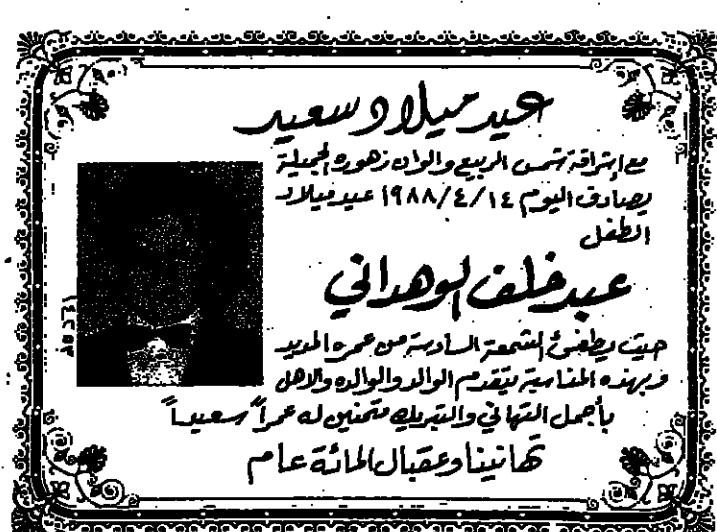 عيد ميلاد سعيد
مع إشراقة شمس الربيع والوان زهوره الجميلة
يصادف اليوم ١٩٨٨/٤/١٤ عيد ميلاد
الطفل
عبد خلف الوهداني
حيث يطفئ الشمعة السادسة من عمره المديد
وبهذه المناسبة يتقدم الوالد والوالده والاهل
بأجمل التهاني والتبريك متمنين له عمراً سعيداً
تهانينا وعقبال المائة عام